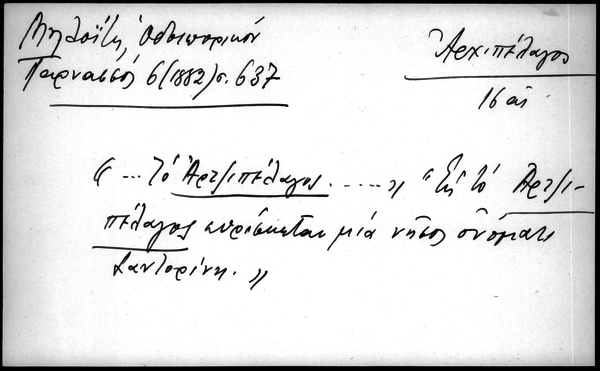 Μηλοΐτη, Οδοιπορικόν
Παρνασσός 6(1882)σ. 637
Ἀρχιπέλαγος
16 αἰ
« ... τό Ἀρτζιπέλαγος. ..... » "Εἰς τό Ἀρτζι-
πέλαγος εὑρίσκεται μιά νῆσος ὀνόματι
Σαντορίνη. »